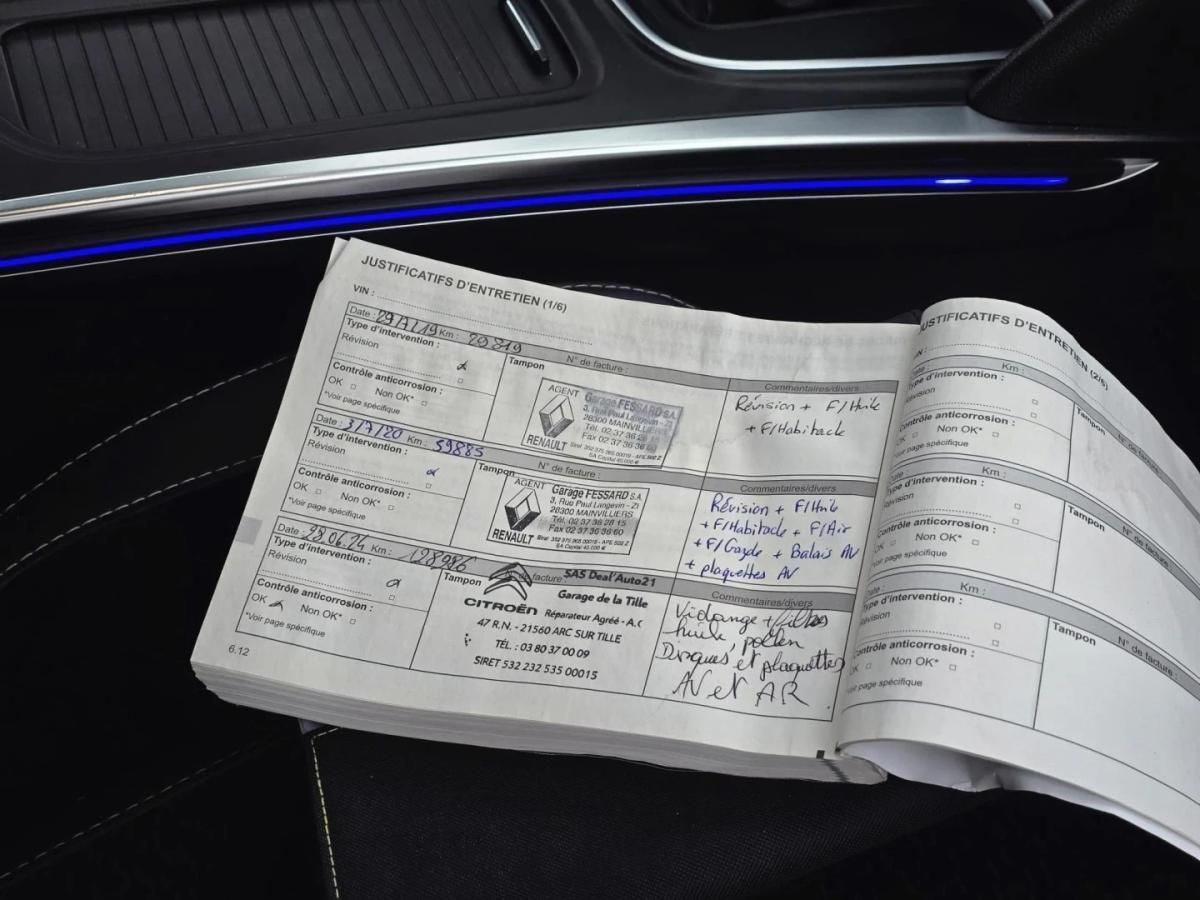 JUSTIFICATIFS D'ENTRETIEN (1/6)
VIN :
Date : 29/7/19 Km : 29819
Type d'intervention :
Révision
Contrôle anticorrosion :
OK Non OK*
*Voir page spécifique
Tampon N° de facture :
AGENT
RENAULT
Garage FESSARD S.A.
3, Rue Paul Langevin - ZI
28300 MAINVILLIERS
Tél. 02 37 36 28 15
Fax 02 37 36 36 60
SA Capital 45.000 €
Commentaires/divers
Révision + F/Huile
+ F/Habitacle
Date : 3/7/20 Km : 59885
Type d'intervention :
Révision
Contrôle anticorrosion :
OK Non OK*
*Voir page spécifique
Tampon N° de facture :
AGENT
RENAULT
Garage FESSARD S.A.
3, Rue Paul Langevin - ZI
28300 MAINVILLIERS
Tél. 02 37 36 28 15
Fax 02 37 36 36 60
SA Capital 45.000 €
Commentaires/divers
Révision + F/Huile
+ F/Habitacle + F/Air
+ F/Gazole + Balais AV
+ plaquettes AV
Date : 28.06.24 Km : 128986
Type d'intervention :
Révision
Contrôle anticorrosion :
OK Non OK*
*Voir page spécifique
Tampon de facture :
CITROËN
SAS Deal'Auto21
Garage de la Tille
Réparateur Agréé - A.C
47 R.N. - 21560 ARC SUR TILLE
TÉL. : 03 80 37 00 09
SIRET 532 232 535 00015
Commentaires/divers
Vidange + filtres
huile pollen
Disques et plaquettes
AV et AR
6.12
JUSTIFICATIFS D'ENTRETIEN (2/6)
Date : Km :
Type d'intervention :
Révision
Contrôle anticorrosion :
OK Non OK*
*Voir page spécifique
Tampon N° de facture
Date : Km :
Type d'intervention :
Révision
Contrôle anticorrosion :
OK Non OK*
*Voir page spécifique
Tampon N° de facture
Date : Km :
Type d'intervention :
Révision
Contrôle anticorrosion :
OK Non OK*
*Voir page spécifique
Tampon N° de facture :